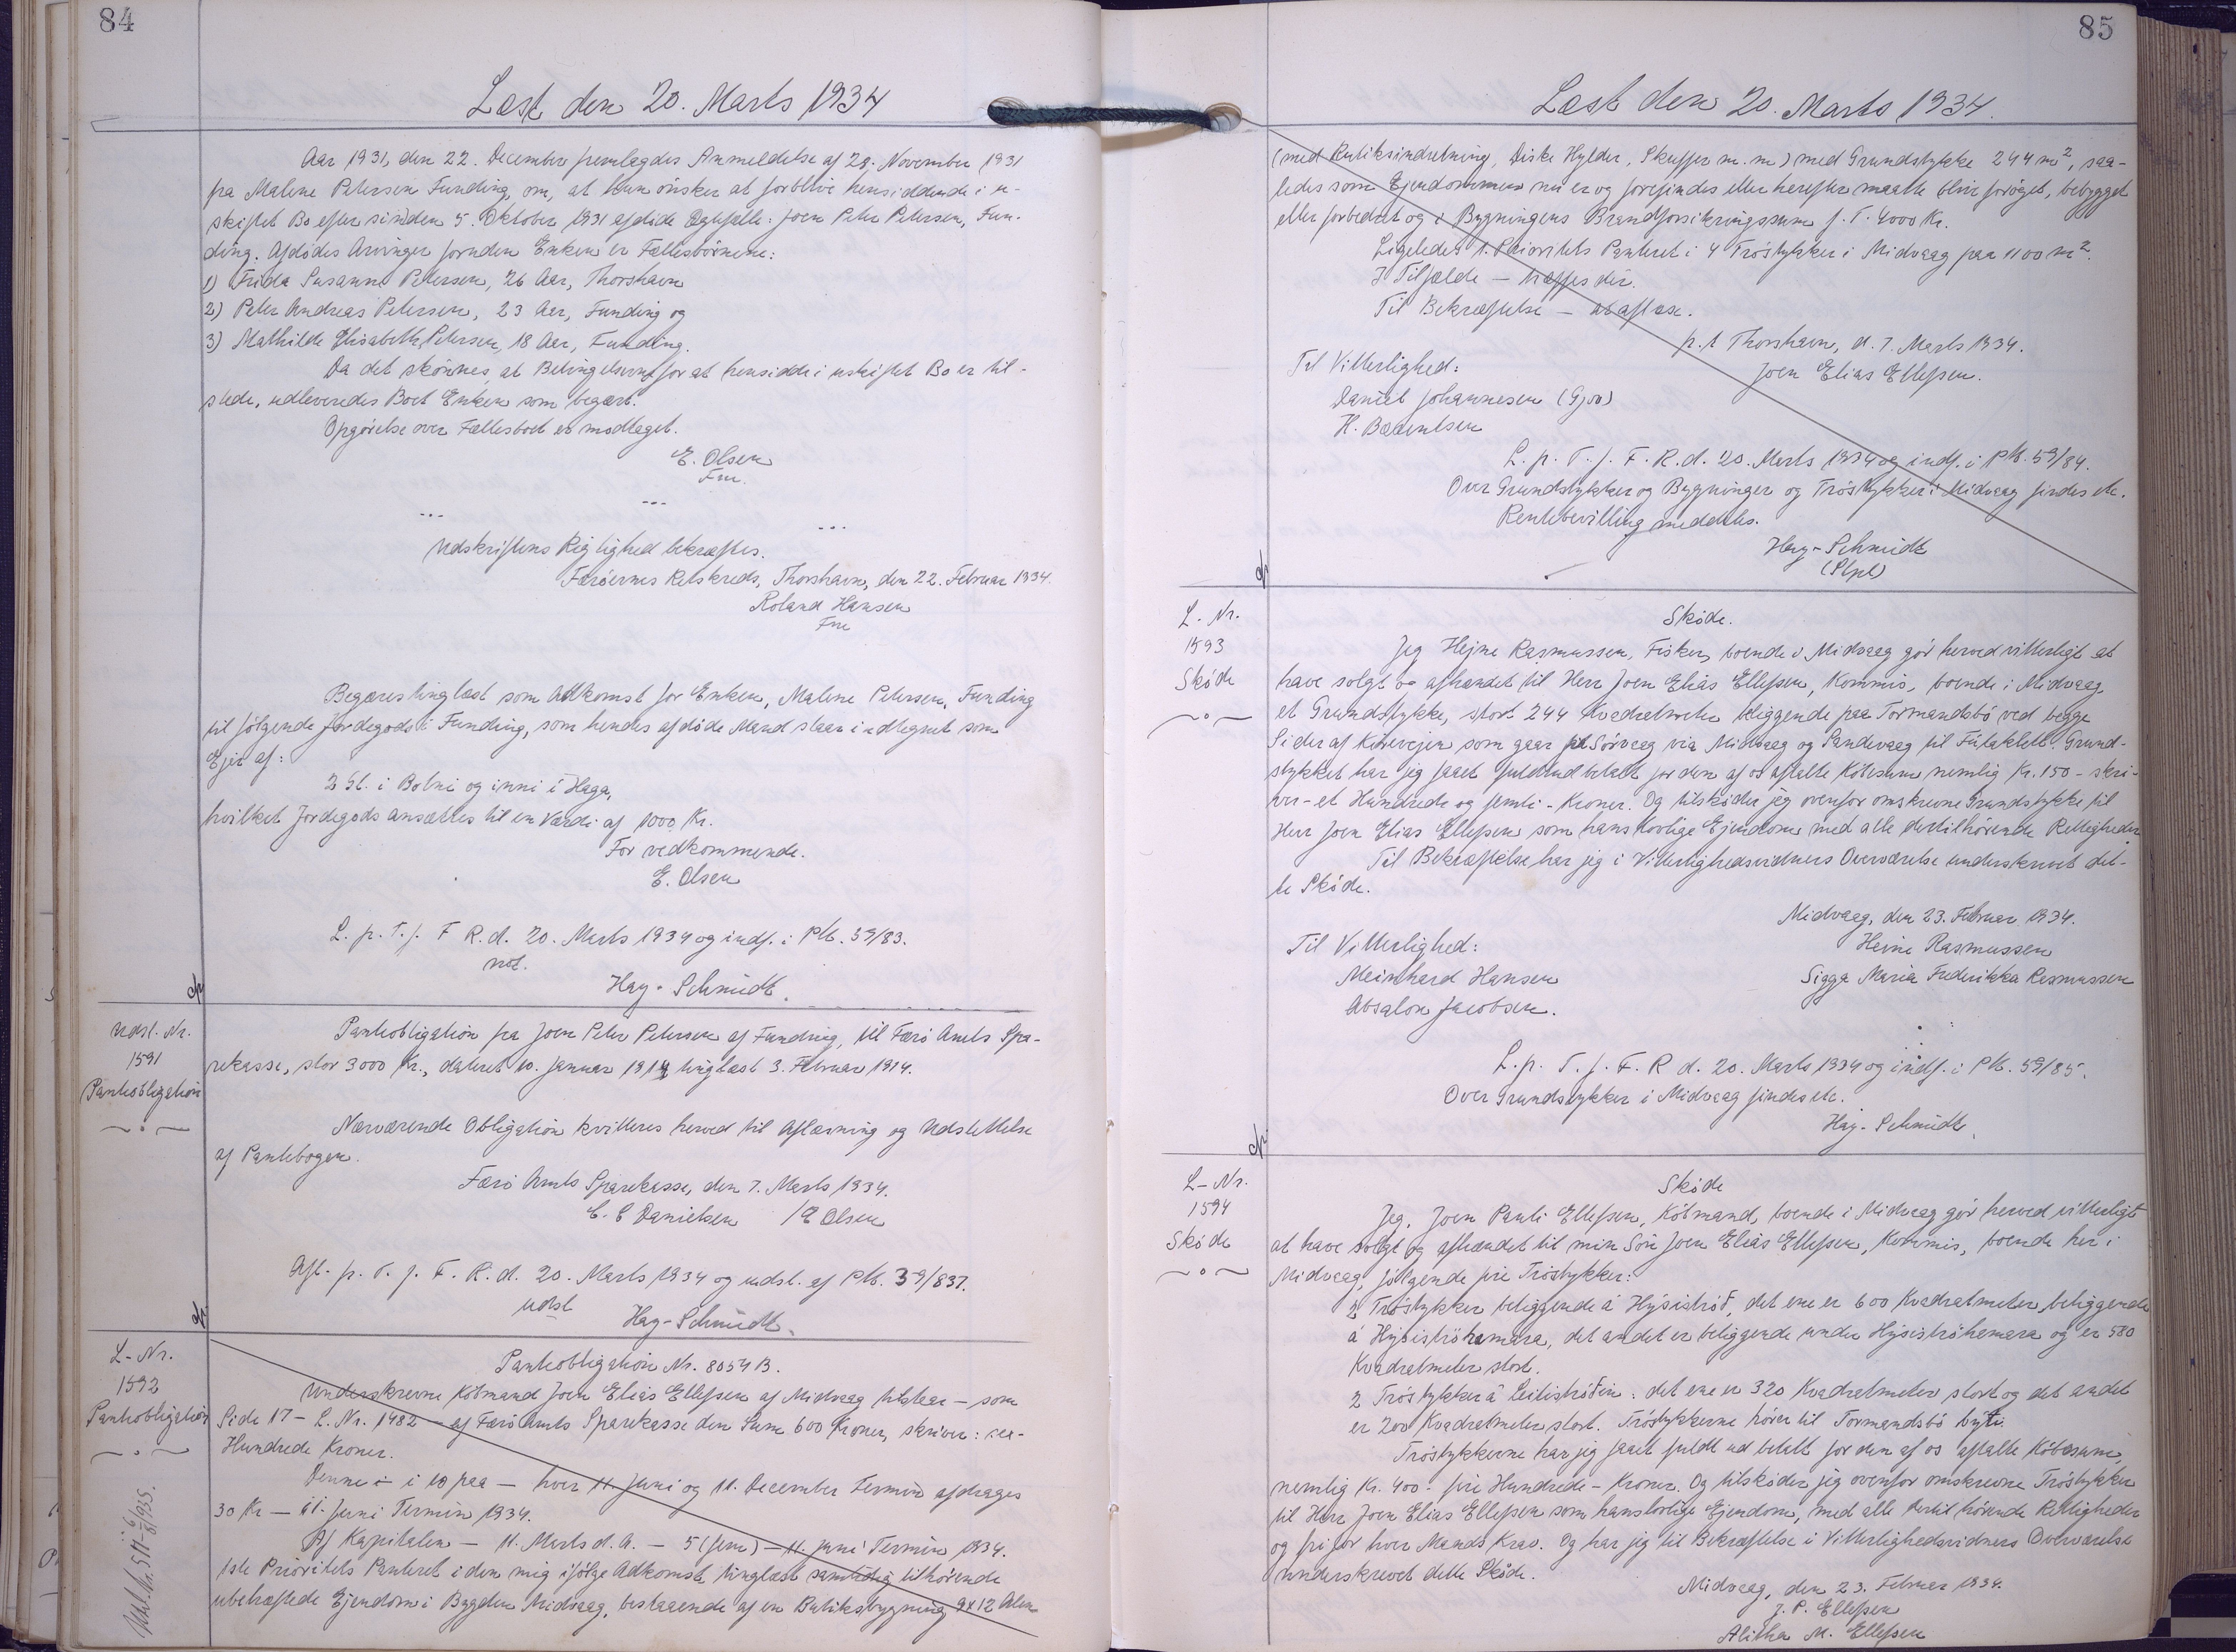 84
Læst den 20. Marts 1934
Aar 1931, den 22. December fremlagdes Anmeldelse af 28. November 1931
fra Malene Petersen Funding, om, at hun ønsker at forblive hensiddende i u-
skiftet Bo efter sin den 5. Oktober 1931 afdøde Ægtefælle: Joen Peter Petersen, Fun-
ding. Afdødes Arvinger foruden Enken er Fællesbørnene:
1) Frida Susanne Petersen, 26 Aar, Thorshavn
2) Peter Andreas Petersen, 23 Aar, Funding og
3) Mathilde Elisabeth Petersen, 18 Aar, Funding.
Da det skønnes, at Betingelserne for at hensidde i uskiftet Bo er til-
stede, udleveredes Boet Enken som begært.
Opgørelse over Fællesboet er modtaget.
E. Olsen
Fm.
... ... ...
Udskriftens Rigtighed bekræftes.
Færøernes Retskreds, Thorshavn, den 22. Februar 1934.
Roland Hansen
Fm
Begæres tinglæst som Adkomst for Enken, Malene Petersen, Funding
til følgende Jordegods i Funding, som hendes afdøde Mand staar indtegnet som
Ejer af:
2 Gl. i Botni og inni i Haga,
hvilket Jordegods ansættes til en Værdi af 1000 Kr.
For vedkommende.
E. Olsen
L. p. T. f. F R. d. 20. Marts 1934 og indf. i Pb. 59/83.
not.
Hay-Schmidt.
Udsl. Nr.
1591
Pantobligation
Pantobligation fra Joen Peter Petersen af Funding, til Færø Amts Spa-
rekasse, stor 3000 Kr., dateret 10. Januar 1914 tinglæst 3. Februar 1914.
Nærværende Obligation kvitteres herved til Aflæsning og Udslettelse
af Pantebogen.
Færø Amts Sparekasse, den 7. Marts 1934.
C. C Danielsen / E Olsen
Afl. p. T. f. F. R. d. 20. Marts 1934 og udsl. af Pb. 39/837.
udsl
Hay-Schmidt.
L-Nr.
1592
Pantobligation
Pantobligation Nr. 8054 B.
Underskrevne Købmand Joen Elias Ellefsen af Midvaag tilstaar – som
Side 17 – L. Nr. 1482 – af Færø Amts Sparekasse den Sum 600 Kroner, skriver: sex-
Hundrede Kroner.
Denne – i 10 paa – hver 11. Juni og 11. December Termin afdrages
30 Kr – 11. Juni Termin 1934.
Af Kapitalen – 11. Marts d. A. – 5 (fem) – 11. Juni Termin 1934.
1ste Prioritets Panteret i den mig ifølge Adkomst tinglæst samtidig tilhørende
ubehæftede Ejendom i Bygden Midvaag, bestaaende af en Butiksbygning 9x12 Alen
85
Læst den 20. Marts 1934.
(med Butiksindretning, Diske Hylder, Skuffer m. m) med Grundstykke 244 m², saa-
ledes som Ejendommen nu er og forefindes eller herefter maatte blive forøget, bebygget
eller forbedret og i Bygningens Brandforsikringssum f. T. 4000 Kr.
Ligeledes 1. Prioritets Panteret i 4 Tröstykker i Midvaag paa 1100 m².
I Tilfælde – træffes der.
Til Bekræftelse – at aflæse.
p. t Thorshavn, d. 7. Marts 1934.
Joen Elias Ellefsen.
Til Vitterlighed:
Daniel Johannesen (Gjov)
H. Barentsen
L. p. T. f. F. R. d. 20. Marts 1934 og indf. i Pb. 59/84.
Over Grundstykker og Bygninger og Tröstykker i Midvaag findes etc.
Rentebevilling meddeles.
Hay-Schmidt
L. Nr.
1593
Skøde
Skøde.
Jeg Hejne Rasmussen, Fisker, boende i Midvaag gør herved vitterligt at
have solgt og afhændet til Herr Joen Elias Ellefsen, Kommis, boende i Midvaag,
et Grundstykke, stort 244 Kvadratmeter beliggende paa Tormandsbø ved begge
Sider af Kørevejen som gaar fra Sørvaag via Midvaag og Sandevaag til Fútaklett. Grund-
stykket har jeg faaet fuldtud betalt for den af os aftalte Købesum nemlig Kr. 150 – skri-
ver – et Hundrede og femti – Kroner. Og tilskøder jeg ovenfor omskrevne Grundstykke til
Herr Joen Elias Ellefsen som hans lovlige Ejendom med alle dertilhørende Rettigheder.
Til Bekræftelse har jeg i Vitterlighedsvidners Overværelse underskrevet det-
te Skøde.
Midvaag, den 23. Februar 1934.
Heine Rasmussen
Sigga Maria Frederikka Rasmussen
Til Vitterlighed:
Meinhard Hansen
Absalon Jacobsen.
L. p. T. f. F. R d. 20. Marts 1934 og indf. i Pb. 59/85.
Over Grundstykker i Midvaag findes etc.
Hay-Schmidt.
L-Nr.
1594
Skøde
Skøde
Jeg, Joen Pauli Ellefsen, Købmand, boende i Midvaag gør herved vitterligt
at have solgt og afhændet til min Søn Joen Elias Ellefsen, Kommis, boende her i
Midvaag, følgende fire Tröstykker:
2 Tröstykker beliggende á Hýsiströð, det ene er 600 Kvadratmeter, beliggende
á Hýsiströhamara, det andet er beliggende under Hýsiströhamara og er 580
Kvadratmeter stort.
2 Tröstykker á Leitiströðin: det ene er 320 Kvadratmeter stort og det andet
er 200 Kvadratmeter stort. Tröstykkerne hører til Tormandsbø býti.
Tröstykkerne har jeg faaet fuldt ud betalt for den af os aftalte Købesum,
nemlig Kr. 400 – fire Hundrede – Kroner. Og tilskøder jeg ovenfor omskrevne Tröstykker
til Herr Joen Elias Ellefsen som hans lovlige Ejendom, med alle dertil hørende Rettigheder
og fri for hver Mands Krav. Og har jeg til Bekræftelse i Vitterlighedsvidners Overværelse
underskrevet dette Skøde.
Midvaag, den 23. Februar 1934.
J. P. Ellefsen
Alitha M. Ellefsen